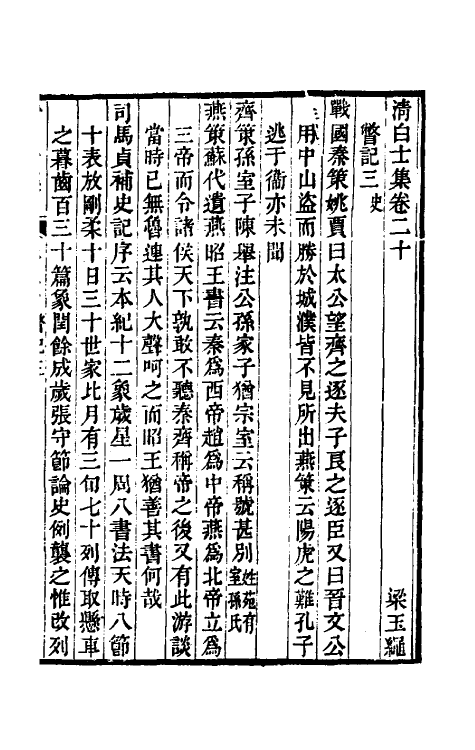 清白士集卷二十
瞥記三 史
梁玉繩
戰國秦策姚賈曰太公望齊之逐夫子良之逐臣又曰晉文公
用中山盜而勝於城濮皆不見所出燕策云陽虎之難孔子
逃于衞亦未聞
齊策孫室子陳舉注公孫家子猶宗室云稱號甚別姓苑有室孫氏
燕策蘇代遺燕昭王書云秦為西帝趙為中帝燕為北帝立為
三帝而令諸侯天下孰敢不聽秦齊稱帝之後又有此游談
當時已無魯連其人大聲呵之而昭王猶善其書何哉
司馬貞補史記序云本紀十二象歲星一周八書法天時八節
十表放剛柔十日三十世家比月有三旬七十列傳取懸車
之暮齒百三十篇象閏餘成歲張守節論史例襲之惟改列